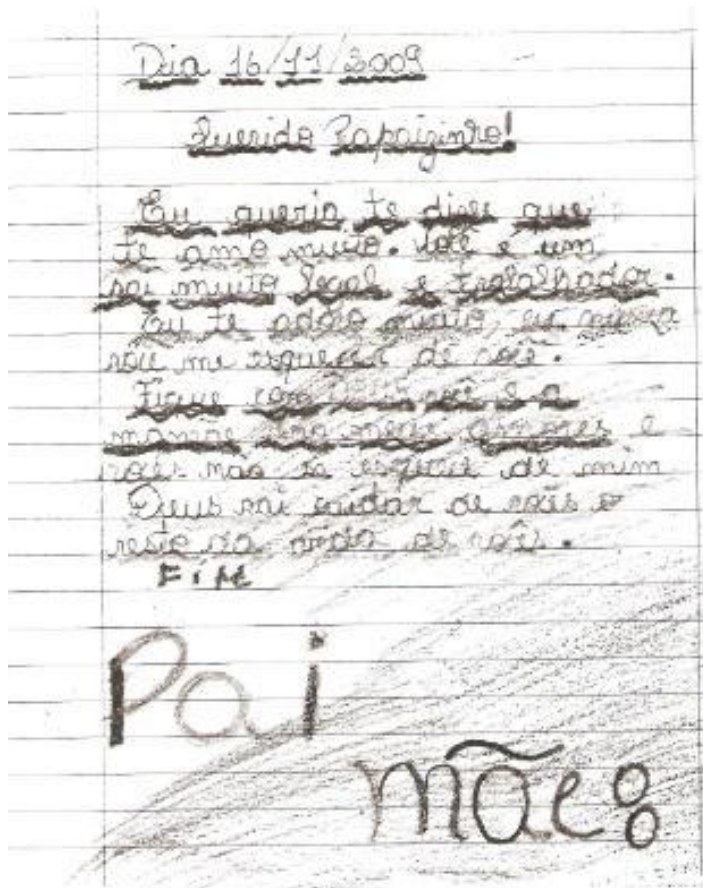 Dia 16/11/2009
Querido Papaizinho!
Eu queria te dise que
te amo muito. você e um
pai muito legal e trabalhador.
Eu te adoro muito, eu nunca
vou me esquecer de
Fique com você e a
mamãe meus amores e
não se esquese de mim
Deus vai cuidar de vocês o
resto da vida de vocês.
Fim
Pai
mãe